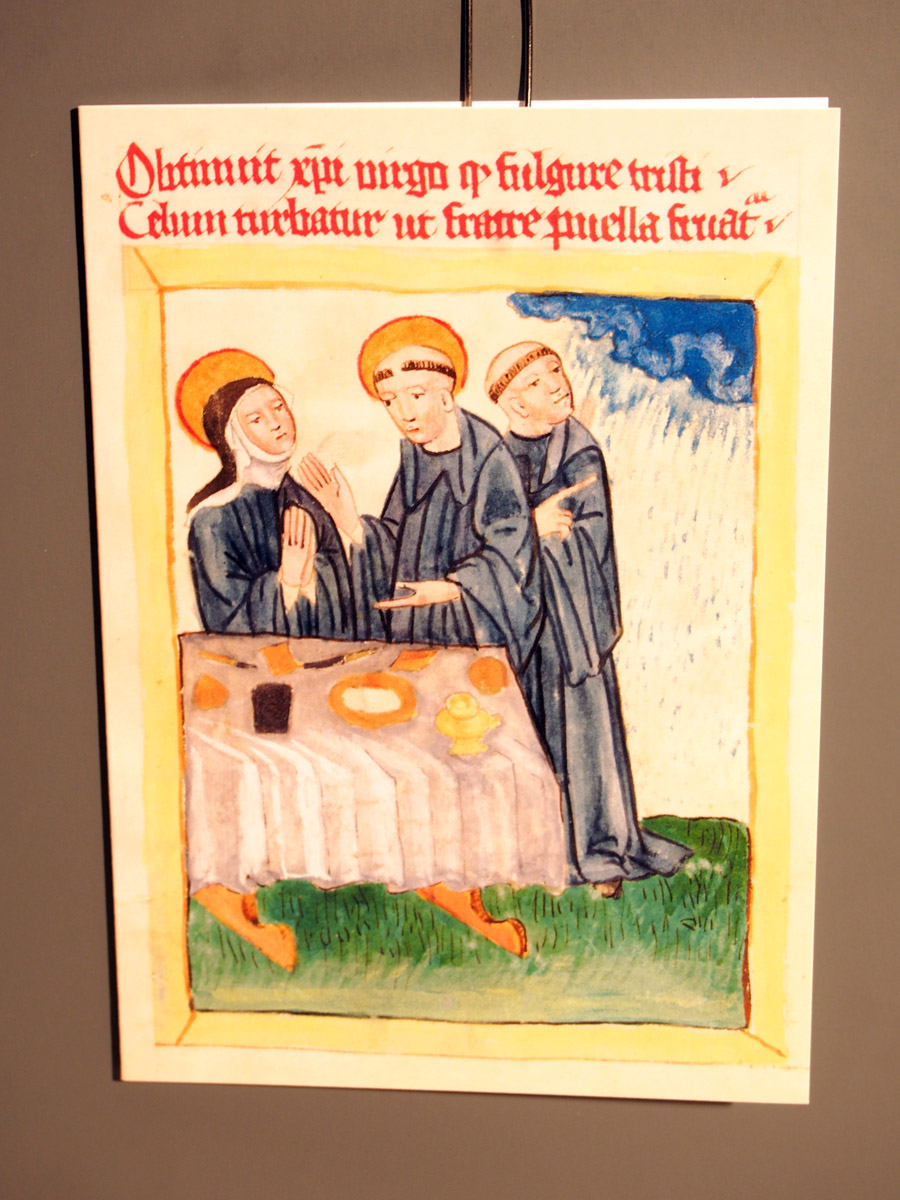 Obtinuit xp̄i virgo qꝫ fulgure tristi
Celum turbatur ut fratre puella fruat᷑